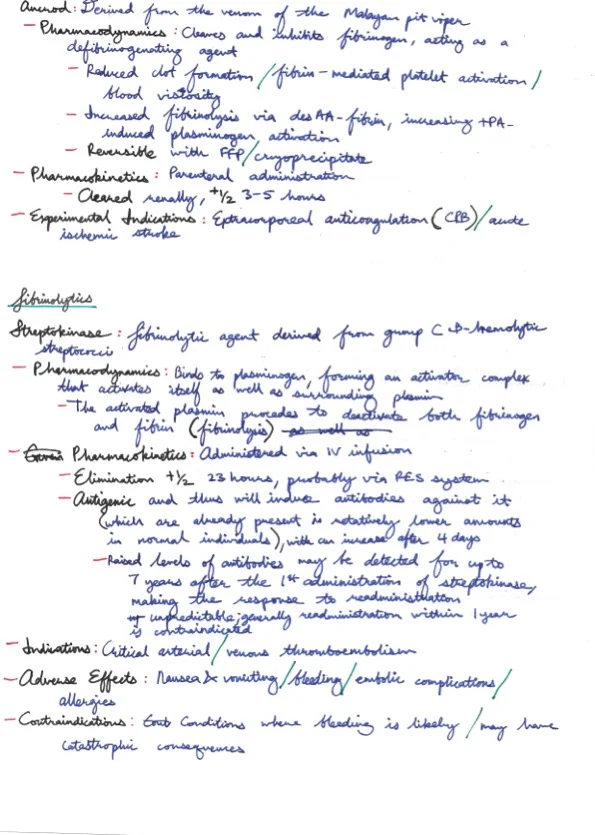 Ancrod: Derived from the venom of the Malayan pit viper
- Pharmacodynamics: Cleaves and inhibits fibrinogen, acting as a
defibrinogenating agent
- Reduced clot formation / fibrin-mediated platelet activation /
blood viscosity
- Increased fibrinolysis via desAA-fibrin, increasing tPA-
induced plasminogen activation
- Reversible with FFP/cryoprecipitate
- Pharmacokinetics: Parenteral administration
- Cleared renally, t1/2 3-5 hours
- Experimental Indications: Extracorporeal anticoagulation (CPB)/acute
ischemic stroke
Fibrinolytics
Streptokinase: fibrinolytic agent derived from group C β-hemolytic
streptococcis
- Pharmacodynamics: Binds to plasminogen, forming an activator complex
that activates itself as well as surrounding plasmin
- The activated plasmin procedes to deactivate both fibrinogen
and fibrin (fibrinolysis) as well as
- Pharmacokinetics: Administered via IV infusion
- Elimination t1/2 23 hours, probably via RES system
- Antigenic and thus will induce antibodies against it
(which are already present in relatively lower amounts
in normal individuals), with an increase after 4 days
- Raised levels of antibodies may be detected for up to
7 years after the 1st administration of streptokinase,
making the response to readministration
unpredictable; generally readministration within 1 year
is contraindicated
- Indications: Critical arterial/venous thromboembolism
- Adverse Effects: Nausea & vomiting/bleeding/embolic complications/
allergies
- Contraindications: Conditions where bleeding is likely/may have
catastrophic consequences